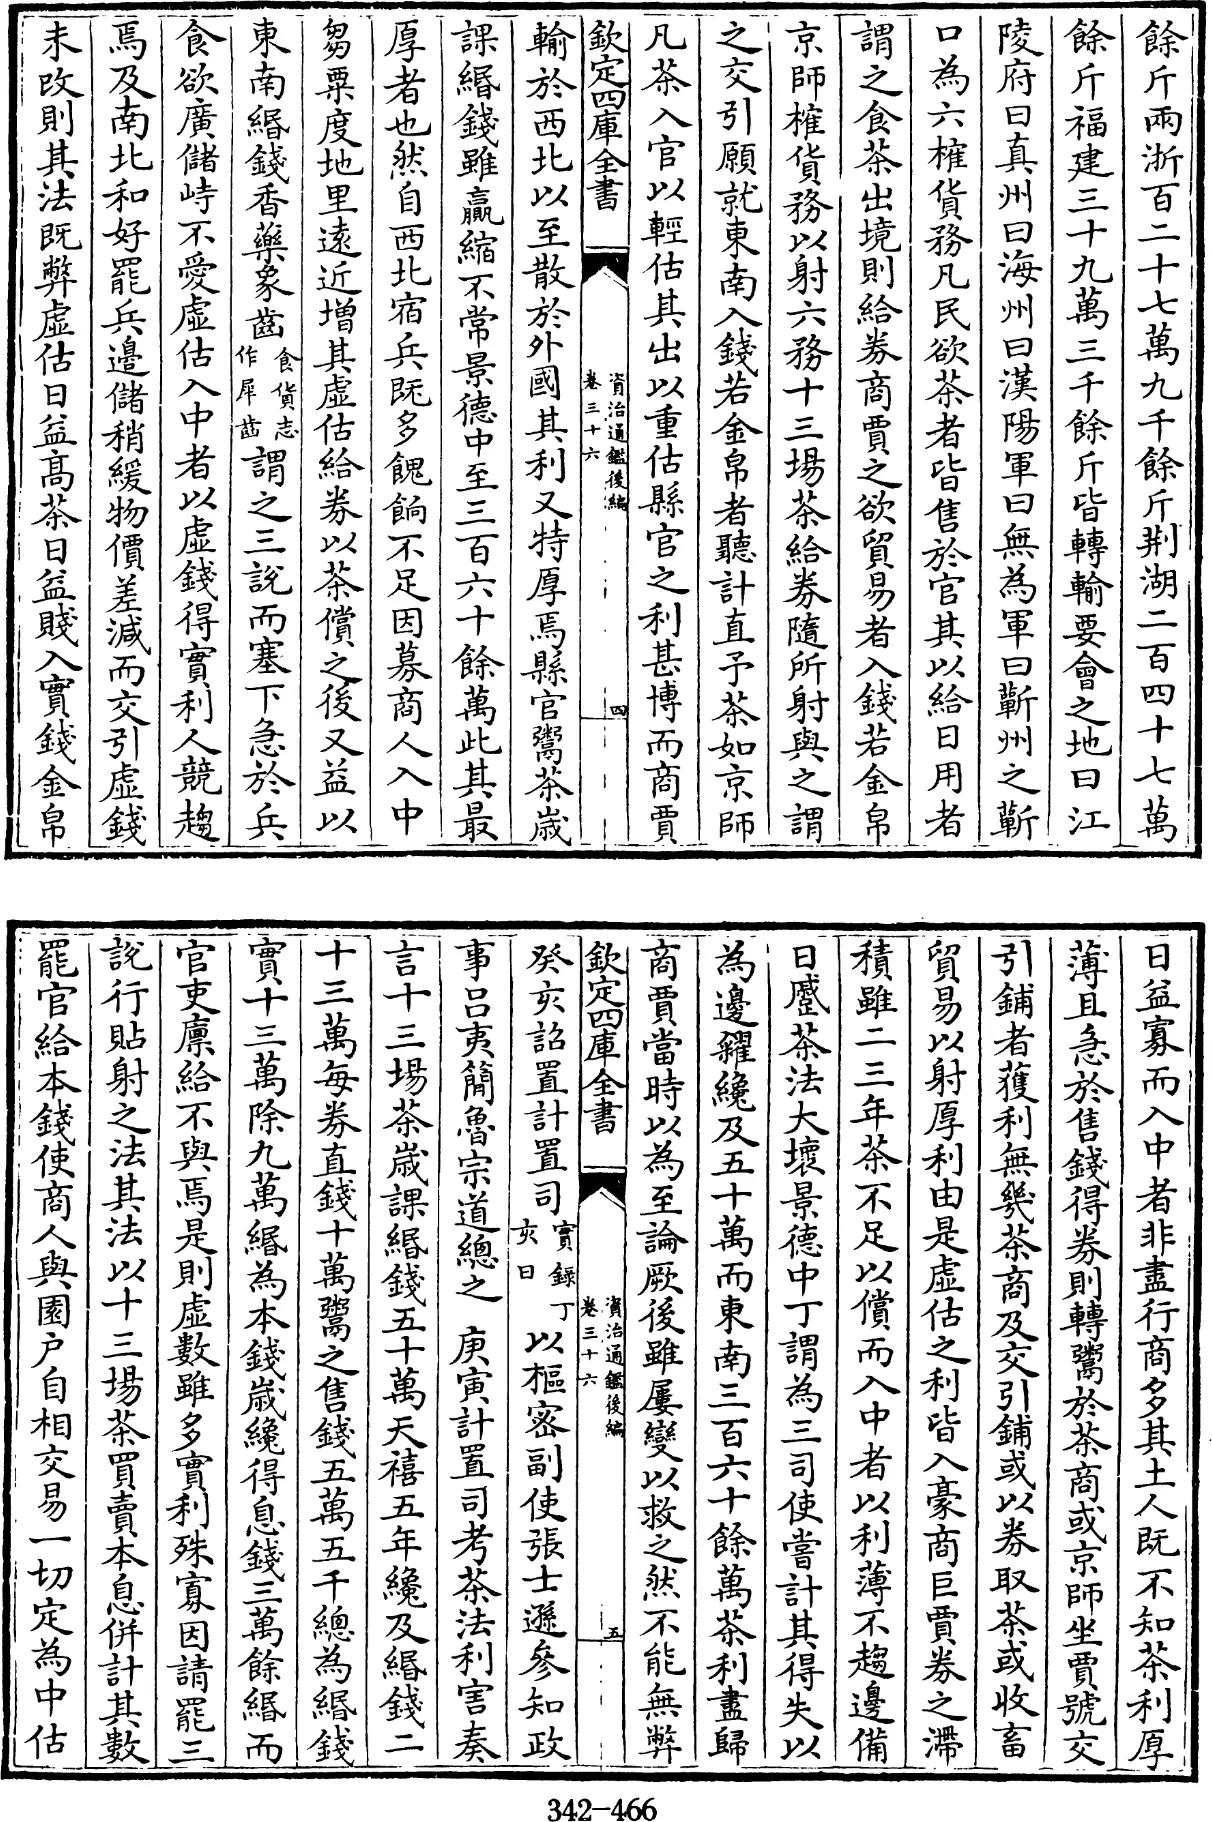 餘斤兩浙百二十七萬九千餘斤荆湖二百四十七萬
餘斤福建三十九萬三千餘斤皆轉輸要會之地曰江
陵府曰真州曰海州曰漢陽軍曰無為軍曰蘄州之蘄
口為六榷貨務凡民欲茶者皆售於官其以給日用者
謂之食茶出境則給券商賈之欲貿易者入錢若金帛
京師榷貨務以射六務十三場茶給券隨所射與之謂
之交引願就東南入錢若金帛者聽計直予茶如京師
凡茶入官以輕估其出以重估縣官之利甚博而商賈
欽定四庫全書
資治通鑑後編
卷三十六
四
輸於西北以至散於外國其利又特厚焉縣官鬻茶歲
課緡錢雖贏縮不常景德中至三百六十餘萬此其最
厚者也然自西北宿兵既多餽餉不足因募商人入中
芻粟度地里遠近增其虛估給券以茶償之後又益以
東南緡錢香藥象齒食貨志作犀齒謂之三說而塞下急於兵
食欲廣儲峙不愛虛估入中者以虛錢得實利人競趨
焉及南北和好罷兵邊儲稍緩物價差減而交引虛錢
未改則其法既弊虛估日益高茶日益賤入實錢金帛
日益寡而入中者非盡行商多其土人既不知茶利厚
薄且急於售錢得券則轉鬻於茶商或京師坐賈號交
引鋪者獲利無幾茶商及交引鋪或以券取茶或收畜
貿易以射厚利由是虛估之利皆入豪商巨賈券之滯
積雖二三年茶不足以償而入中者以利薄不趨邊備
日蹙茶法大壞景德中丁謂為三司使嘗計其得失以
為邊糴纔及五十萬而東南三百六十餘萬茶利盡歸
商賈當時以為至論厥後雖屢變以救之然不能無弊
欽定四庫全書
資治通鑑後編
卷三十六
五
癸亥詔置計置司實錄丁亥日以樞密副使張士遜參知政
事呂夷簡魯宗道總之　庚寅計置司考茶法利害奏
言十三場茶歲課緡錢五十萬天禧五年纔及緡錢二
十三萬每券直錢十萬鬻之售錢五萬五千總為緡錢
實十三萬除九萬緡為本錢歲纔得息錢三萬餘緡而
官吏廪給不與焉是則虛數雖多實利殊寡因請罷三
說行貼射之法其法以十三場茶買賣本息併計其數
罷官給本錢使商人與園户自相交易一切定為中估
342-466